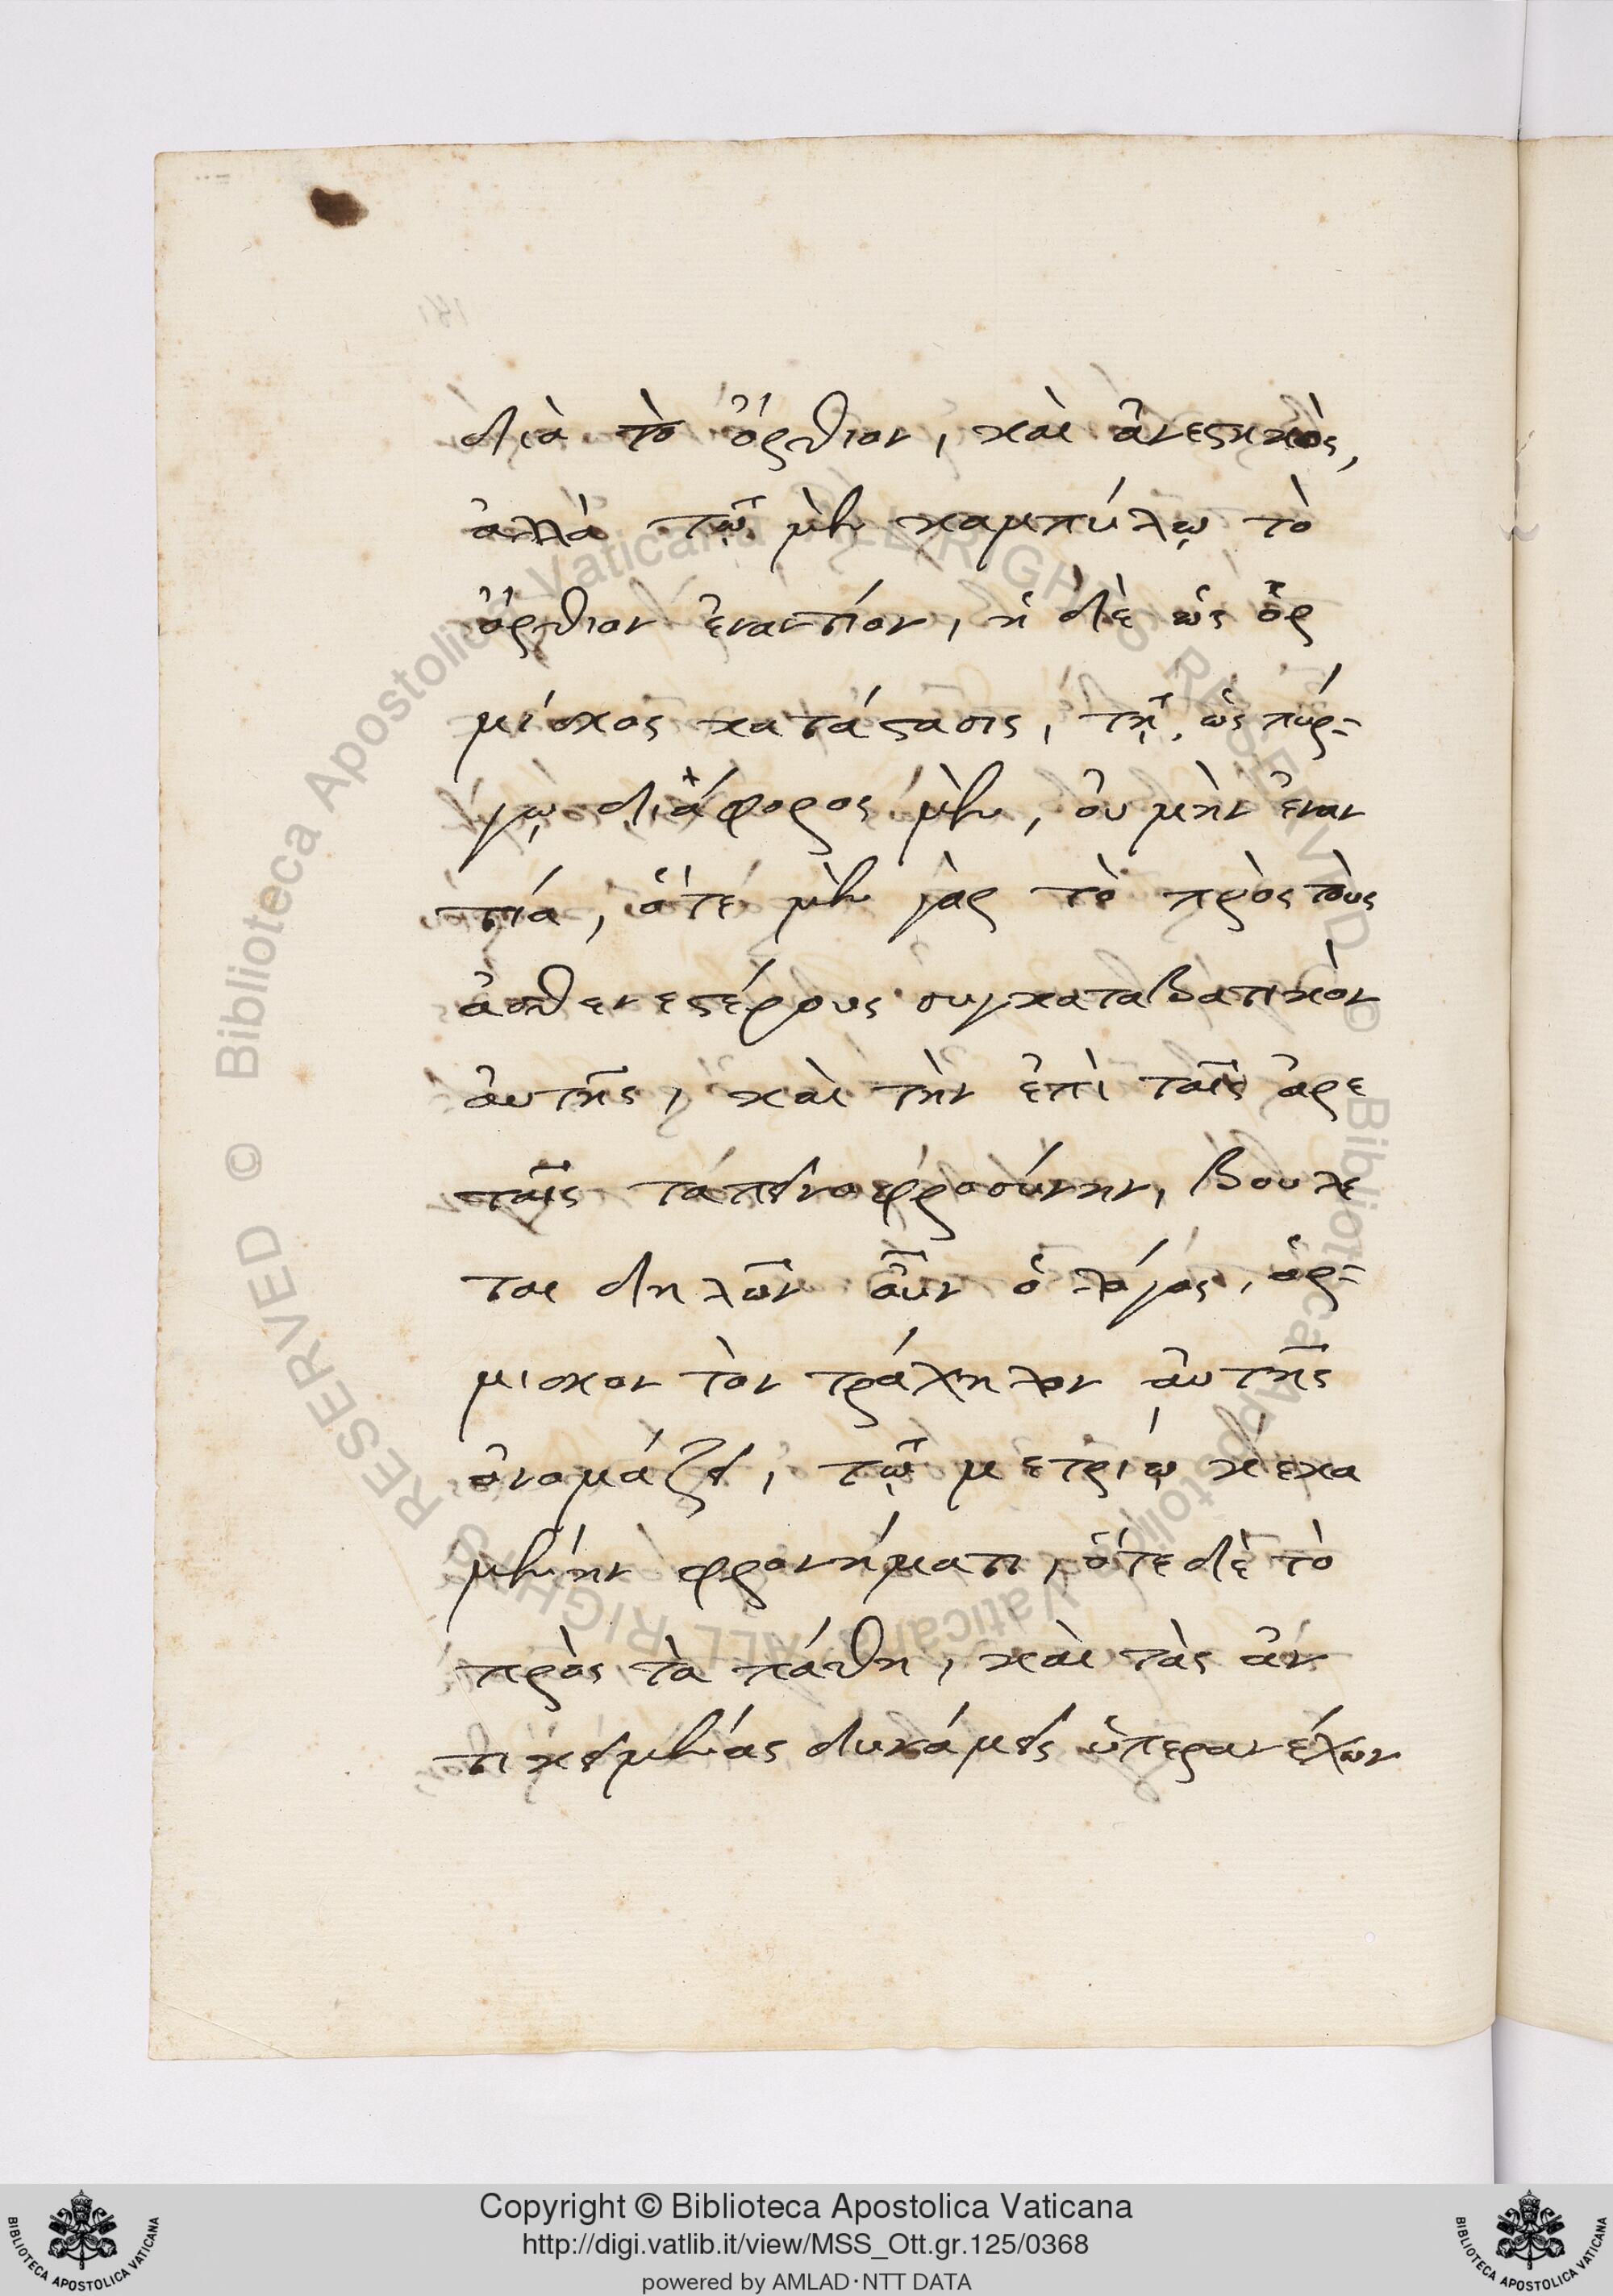 διὰ τὸ ὄρθιον, καὶ ἀνεστηκὸς,
ἀλλὰ τῷ μὲν καμπύλῳ τὸ
ὄρθιον ἐναντίον, ἡ δὲ ὡς ὁρ
μίσκος κατάστασις, τῇ ὡς πύρ-
γῳ διάφορος μὲν, οὐ μὴν ἐναν
τία, ὁτὲ μὲν γὰρ τὸ πρὸς τοὺς
ἀσθενεστέρους συγκαταβατικὸν
αὐτῆς, καὶ τὴν ἐπὶ ταῖς ἀρε
ταῖς ταπεινοφροσύνην, βουλε
ται δηλῶν οὖν ὁ λόγος, ὁρ-
μισκον τὸν τράχηλον αὐτῆς
ὀνομάζει, τῷ μετρίῳ κεκα
μένην φρονήματι, ὁτὲ δὲ τὸ
πρὸς τὰ πάθη, καὶ τὰς ἀν
τικειμένας δυνάμεις ὑπερανέχων
Copyright © Biblioteca Apostolica Vaticana
http://digi.vatlib.it/view/MSS_Ott.gr.125/0368
powered by AMLAD·NTT DATA
BIBLIOTECA APOSTOLICA VATICANA
BIBLIOTECA APOSTOLICA VATICANA
© Biblioteca Apostolica Vaticana ALL RIGHTS RESERVED
© Biblioteca Apostolica Vaticana ALL RIGHTS RESERVED